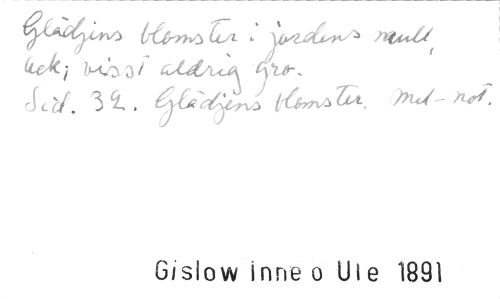 Glädjens blomster i jordens mull,
ack, visst aldrig gro.
Sid. 32. Glädjens blomster. Mel-not.
Gislow Inne o Ute 1891